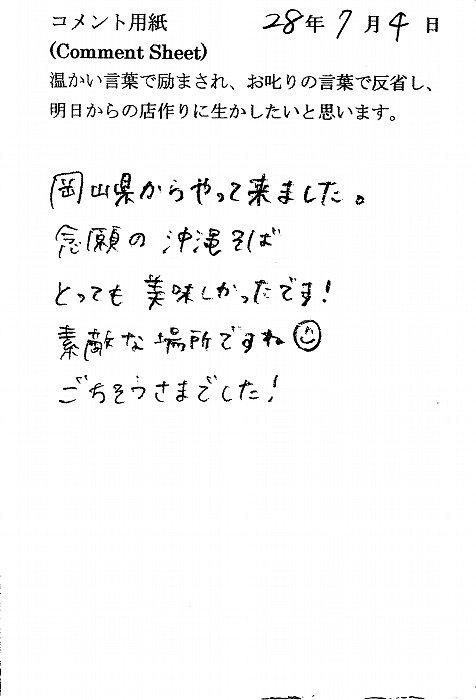 コメント用紙 28年 7月 4日
(Comment Sheet)
温かい言葉で励まされ、お叱りの言葉で反省し、
明日からの店作りに生かしたいと思います。
岡山県からやって来ました。
念願の 沖縄そば
とっても 美味しかったです!
素敵な場所ですね
ごちそうさまでした!